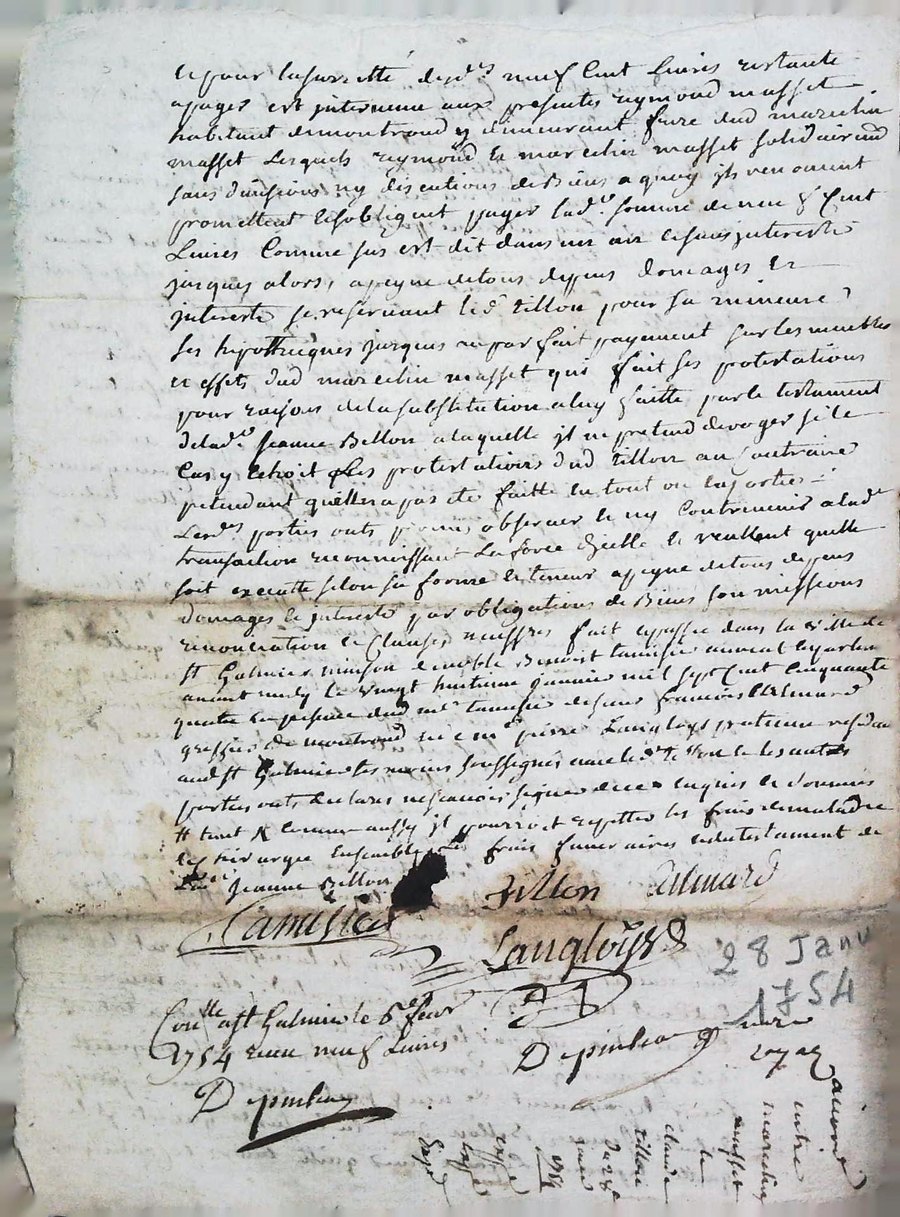 et pour la surretté desd.s neuf Cent Livres restante
a payer est intervenu aux presentes reymond masset
habitant de montrond y demeurant frere dud marcelin
masset Lesquels reymond et marcelin masset solidairem.
sans division ny discutions de Biens a quoy ils renoncent
promettent et s'obligent payer lad.e somme de neuf Cent
Livres Comme sus est dit dans un an et sans interets
jusques alors, a peyne de tous depens domages et
interets se reservant led.t tillon pour sa mineure
ses hipotheques jusques au parfait payement sur les meubles
et effets dud marcelin masset qui fait ses protestations
pour raison de la substitution a luy faitte par le testament
de lad.e Jeanne Bellon a laquelle il n pretend deroger si le
Cas y echoit et les protestations dud tillon au Contraire
pretendant quelle n a pas ete faitte en tout ou en partie
Lesd.s parties onts promis observer et ny Contrevenir a lad.e
transaction reconnoissant La force d'icelle et veullent quelle
soit executtée selon sa forme et teneur a peyne de tous depens
domages et interets par obligations de Biens soumissions
renonciation et Clauses fait et passé dans la ville de
st Galmier maison de noble Benoist tamisier avocat en parlem.
avant midy le vingt huitieme janvier mil sept Cent Cinquante
quatre en presence dud m.e tamisier et de sieur françois
greffier de montrond et de m.e pierre Langloys praticien residant
aud st Galmier temoins soussignés avec led.t tillon et les autres
parties onts declaré ne sçavoir signer de ce enquis et sommés
# tout comme aussy il pourroit repetter les frais de maladie
ensemble Les frais funeraires et du testament de
Lad.e Jeanne Bellon
Tamisier Tillon
Langloys
28 Janv
1754
Con.lle a st Galmier le 6.e fevr
1754 reçu neuf Livres
Depinlea
Depinlea
entre
marcelin
masset
et
claude
tillon
du 28.e
janv
1754